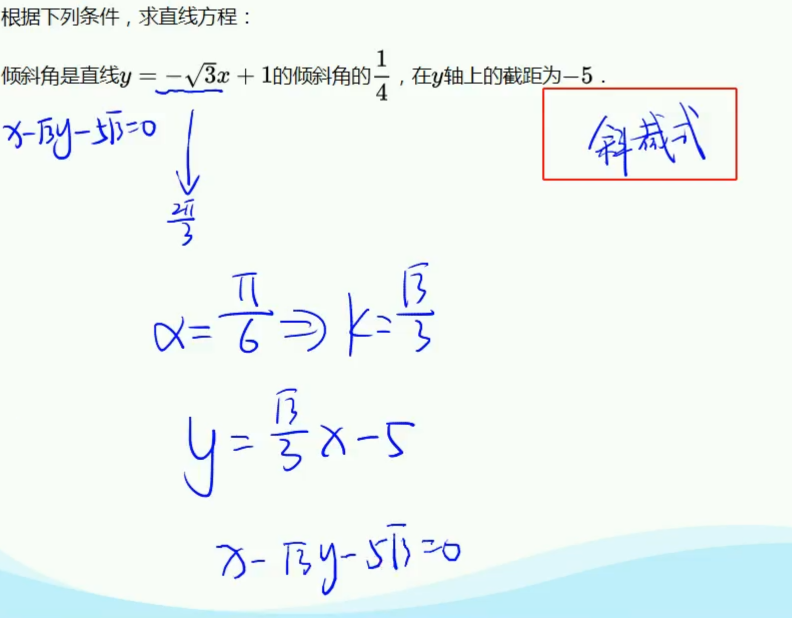 根据下列条件，求直线方程：
倾斜角是直线y = −√3x + 1的倾斜角的1/4，在y轴上的截距为−5．
x-√3y-5√3=0
斜截式
2π/3
α=π/6⇒k=√3/3
y=√3/3x-5
x-√3y-5√3=0